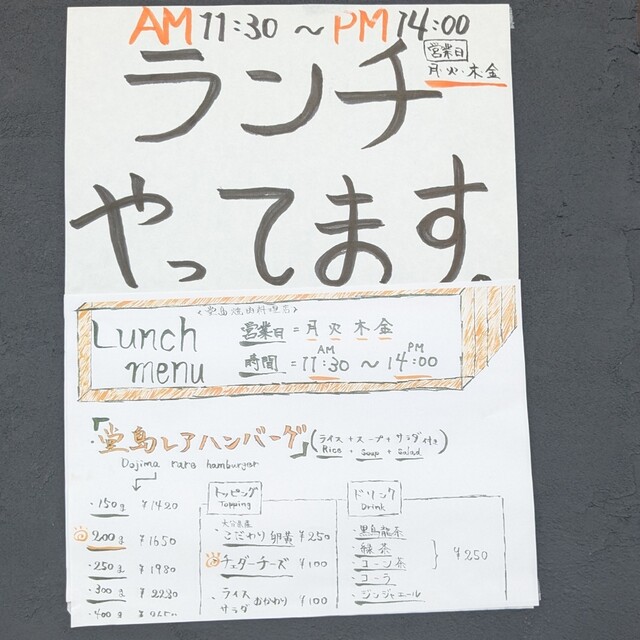 AM 11:30 ～ PM 14:00
営業日
月・火・木 金
ランチ
やってます。
Lunch
menu
営業日 = 月 火 木 金
時間 = AM 11:30 ～ PM 14:00
「堂島レアハンバーグ」(ライス+スープ+サラダ付き)
Rice + Soup + Salad
Dojima rare hamburger
・150g ¥1420
200g ¥1650
・250g ¥1980
・300g ¥2230
・400g
トッピング
Topping
・大分県産
こだわり 卵黄 ¥250
チェダーチーズ ¥100
・ライス
サラダ おかわり ¥100
ドリンク
Drink
・黒烏龍茶
・緑茶
・コーン茶
・コーラ
・ジンジャエール
¥250